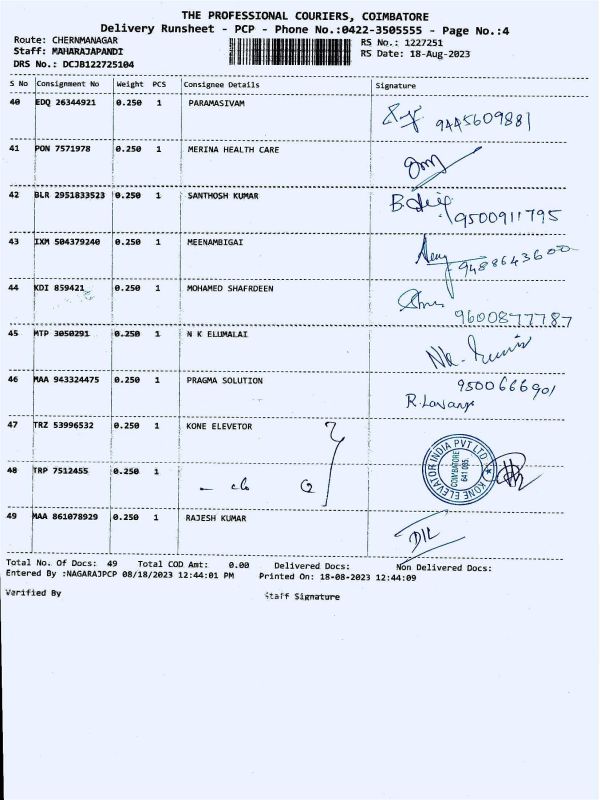 THE PROFESSIONAL COURIERS, COIMBATORE
Delivery Runsheet - PCP - Phone No.:0422-3505555 - Page No.:4
Route: CHERNMANAGAR RS No.: 1227251
Staff: MAHARAJAPANDI RS Date: 18-Aug-2023
DRS No.: DCJB122725104
S No Consignment No Weight PCS Consignee Details Signature
40 EDQ 26344921 0.250 1 PARAMASIVAM 9445609881
41 PON 7571978 0.250 1 MERINA HEALTH CARE
42 BLR 2951833523 0.250 1 SANTHOSH KUMAR 9500911795
43 IXM 504379240 0.250 1 MEENAMBIGAI 9488643600
44 KDI 859421 0.250 1 MOHAMED SHAFRDEEN
9600877787
45 MTP 3050291 0.250 1 N K ELUMALAI
46 MAA 943324475 0.250 1 PRAGMA SOLUTION 9500666901
47 TRZ 53996532 0.250 1 KONE ELEVETOR
KONE ELEVATOR INDIA PVT LTD
COIMBATORE
641 035.
48 TRP 7512455 0.250 1
49 MAA 861078929 0.250 1 RAJESH KUMAR
Total No. Of Docs: 49 Total COD Amt: 0.00 Delivered Docs: Non Delivered Docs:
Entered By :NAGARAJPCP 08/18/2023 12:44:01 PM Printed On: 18-08-2023 12:44:09
Verified By Staff Signature